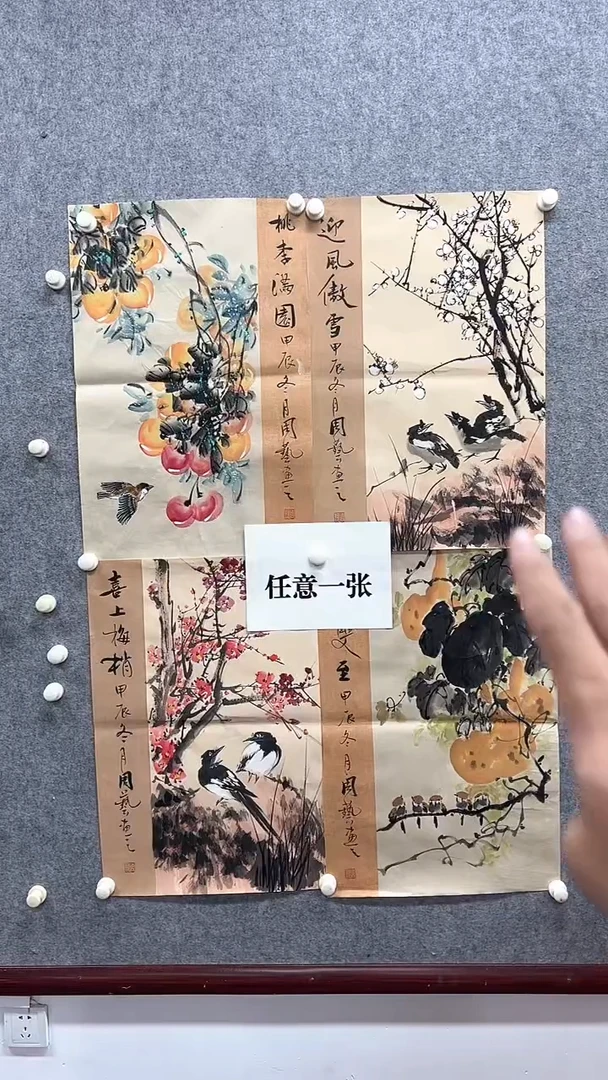 桃李满園甲辰冬月周藝画之
迎風傲雪甲辰冬月周藝画之
任意一张
喜上梅梢甲辰冬月周藝画之
至甲辰冬月周藝画之